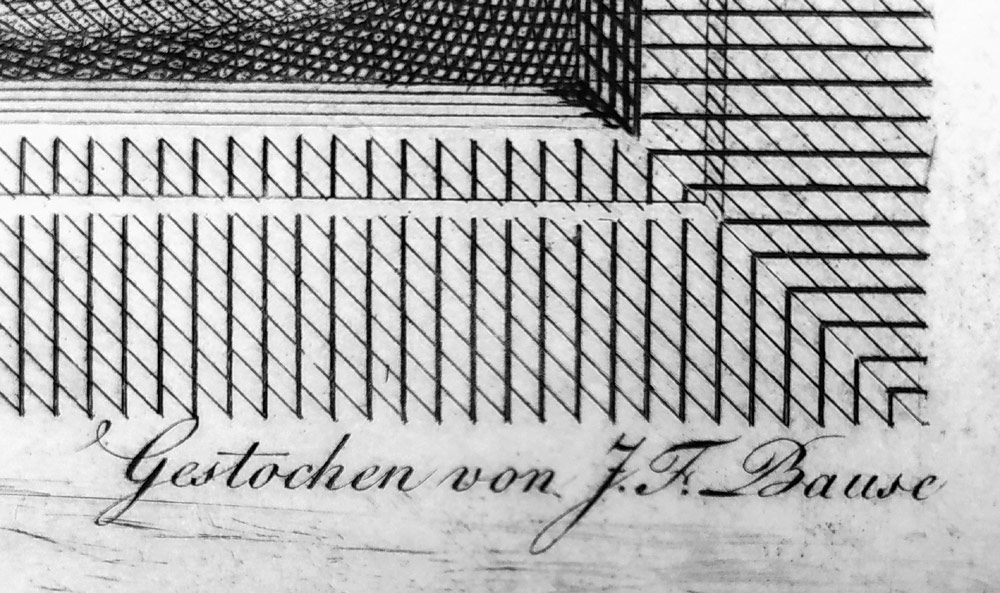 Gestochen von J. F. Bause